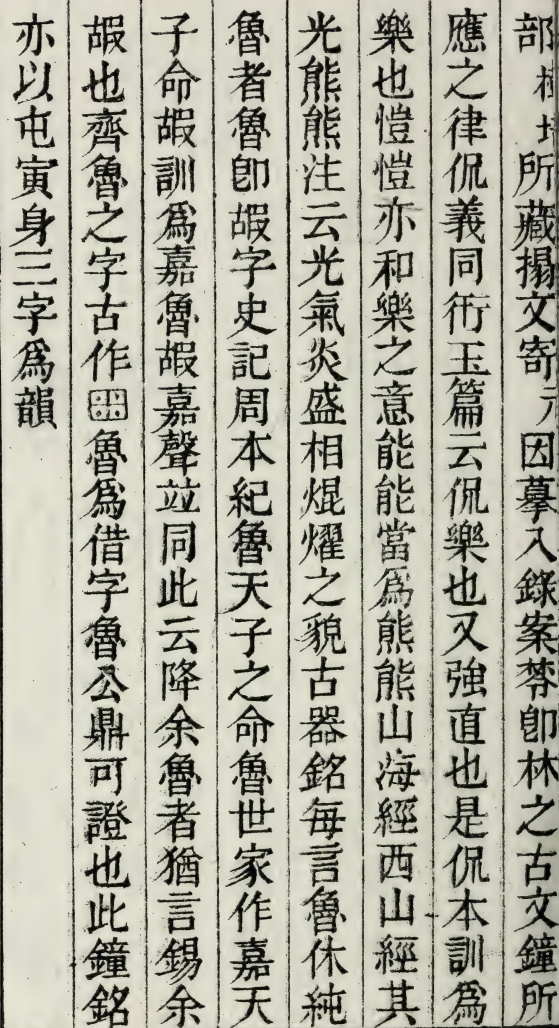 部所藏搨文寄因摹入錄案棽卽林之古文鐘所
應之律侃義同衎玉篇云侃樂也又強直也是侃本訓爲
樂也愷愷亦和樂之意能能當爲熊熊山海經西山經其
光熊熊注云光氣炎盛相焜燿之貌古器銘每言魯休純
魯者魯卽嘏字史記周本紀魯天子之命魯世家作嘉天
子命嘏訓爲嘉魯嘏嘉聲竝同此云降余魯者猶言錫余
嘏也齊魯之字古作魯爲借字魯公鼎可證也此鐘銘
亦以屯寅身三字爲韻